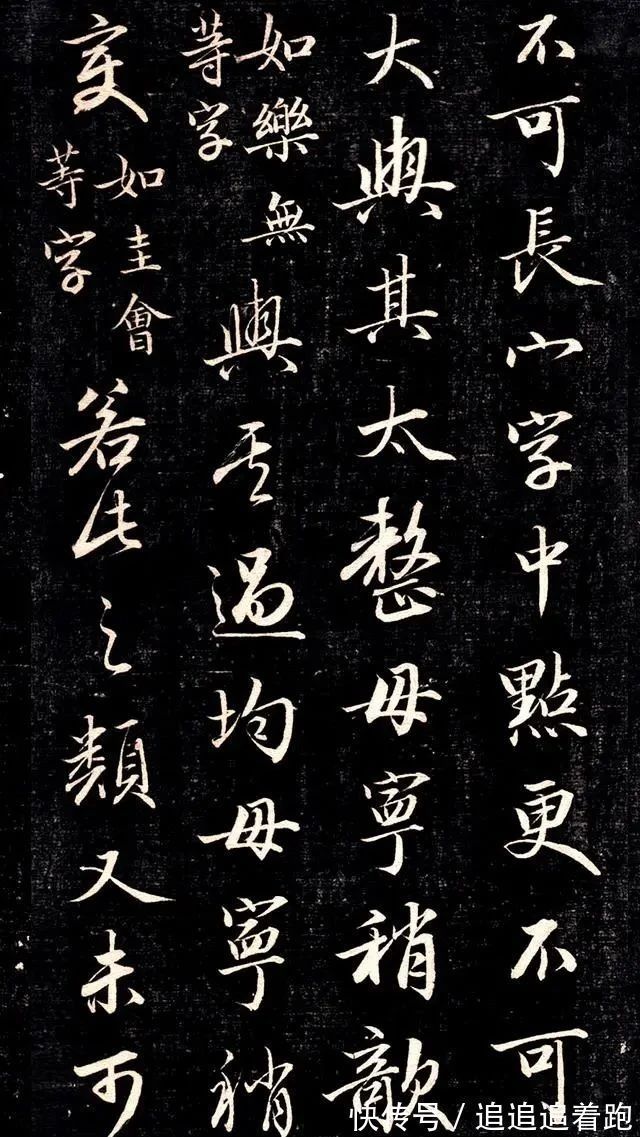 不可長宀字中點更不可
大與其太整毋寧稍欹
如樂無
等字
與其過均毋寧稍
変
如圭會
等字
若此之類又未可
快传号 / 追追追着跑